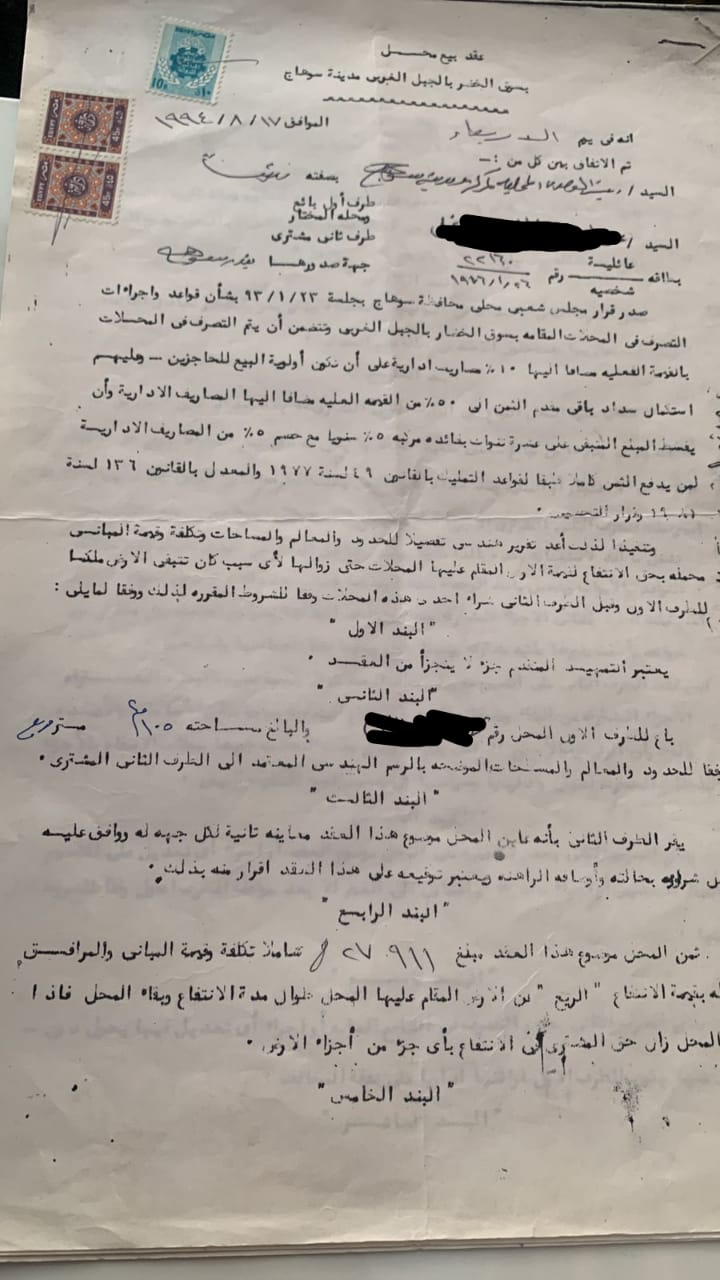 عقد بيع محل
بسوق الخضر بالجبل الغربى مدينة سوهاج
انه فى يوم الاربعاء الموافق ١٧/٨/١٩٩٤
تم الاتفاق بين كل من :ــ
السيد / رئيس الوحدة المحلية لمركز ومدينة سوهاج بصفته
طرف أول بائع
ومحله المختار
السيد /
طرف ثانى مشترى
بطاقه عائلية شخصيه رقم ٢٢١٦٠ جهة صدورها بندر سوهاج
صدر قرار مجلس شعبى محلى محافظة سوهاج بجلسة ٩٣/١/٢٣ بشأن قواعد واجراءات
التصرف فى المحلات المقامه بسوق الخضار بالجبل الغربى وتتضمن أن يتم التصرف فى المحلات
بالقيمة الفعليه مضافا اليها ١٠٪ مصاريف ادارية على أن تكون أولوية البيع للحاجزين ــ وعليهم
استكمال سداد باقى مقدم الثمن الى ٥٠٪ من القيمه الفعليه مضافا اليها المصاريف الادارية وأن
يقسط المبلغ المتبقى على عشرة سنوات بفائده مركبه ٥٪ سنويا مع خصم ٥٪ من المصاريف الادارية
لمن يدفع الثمن كاملا طبقا لقواعد التمليك بالقانون ٤٩ لسنة ١٩٧٧ والمعدل بالقانون ١٣٦ لسنة
١٩٨١ وقرار التحسين .
وتنفيذا لذلك أعد تقرير هندسى تفصيلا للحدود والمعالم والمساحات وتكلفة وقيمة المبانى
محمله بحق الانتفاع لقيمة الارض المقام عليها المحلات حتى زوالها لأى سبب كان وتبقى الارض ملكا
للطرف الاول وقبل الطرف الثانى شراء احدى هذه المحلات وفقا للشروط المقرره لذلك ووفقا لمايلى :
" البند الاول "
يعتبر التمهيد المتقدم جزء لا يتجزأ من العقد .
" البند الثانى "
باع للطرف الاول المحل رقم والبالغ مساحته ١٠٥ م٢ متر مربع
وفقا للحدود والمعالم والمسطحات الموضحه بالرسم الهندسى المعتمد الى الطرف الثانى المشترى .
" البند الثالث "
يقر الطرف الثانى بأنه عاين المحل موضوع هذا العقد معاينه تانية لكل جهه له ووافق عليه
شروره بحالته وأوصافه الراهنه ويعتبر توقيعه على هذا العقد اقرار منه بذلك .
" البند الرابع "
ثمن المحل موضوع هذا العقد مبلغ ٢٧٩١١ شاملا تكلفة وقيمة المبانى والمرافق
بقيمة الانتفاع " الريع " عن الارض المقام عليها المحل طوال مدة الانتفاع وبقاء المحل فاذا
المحل زال حق المشترى فى الانتفاع بأى جزء من أجزاء الارض .
" البند الخامس "